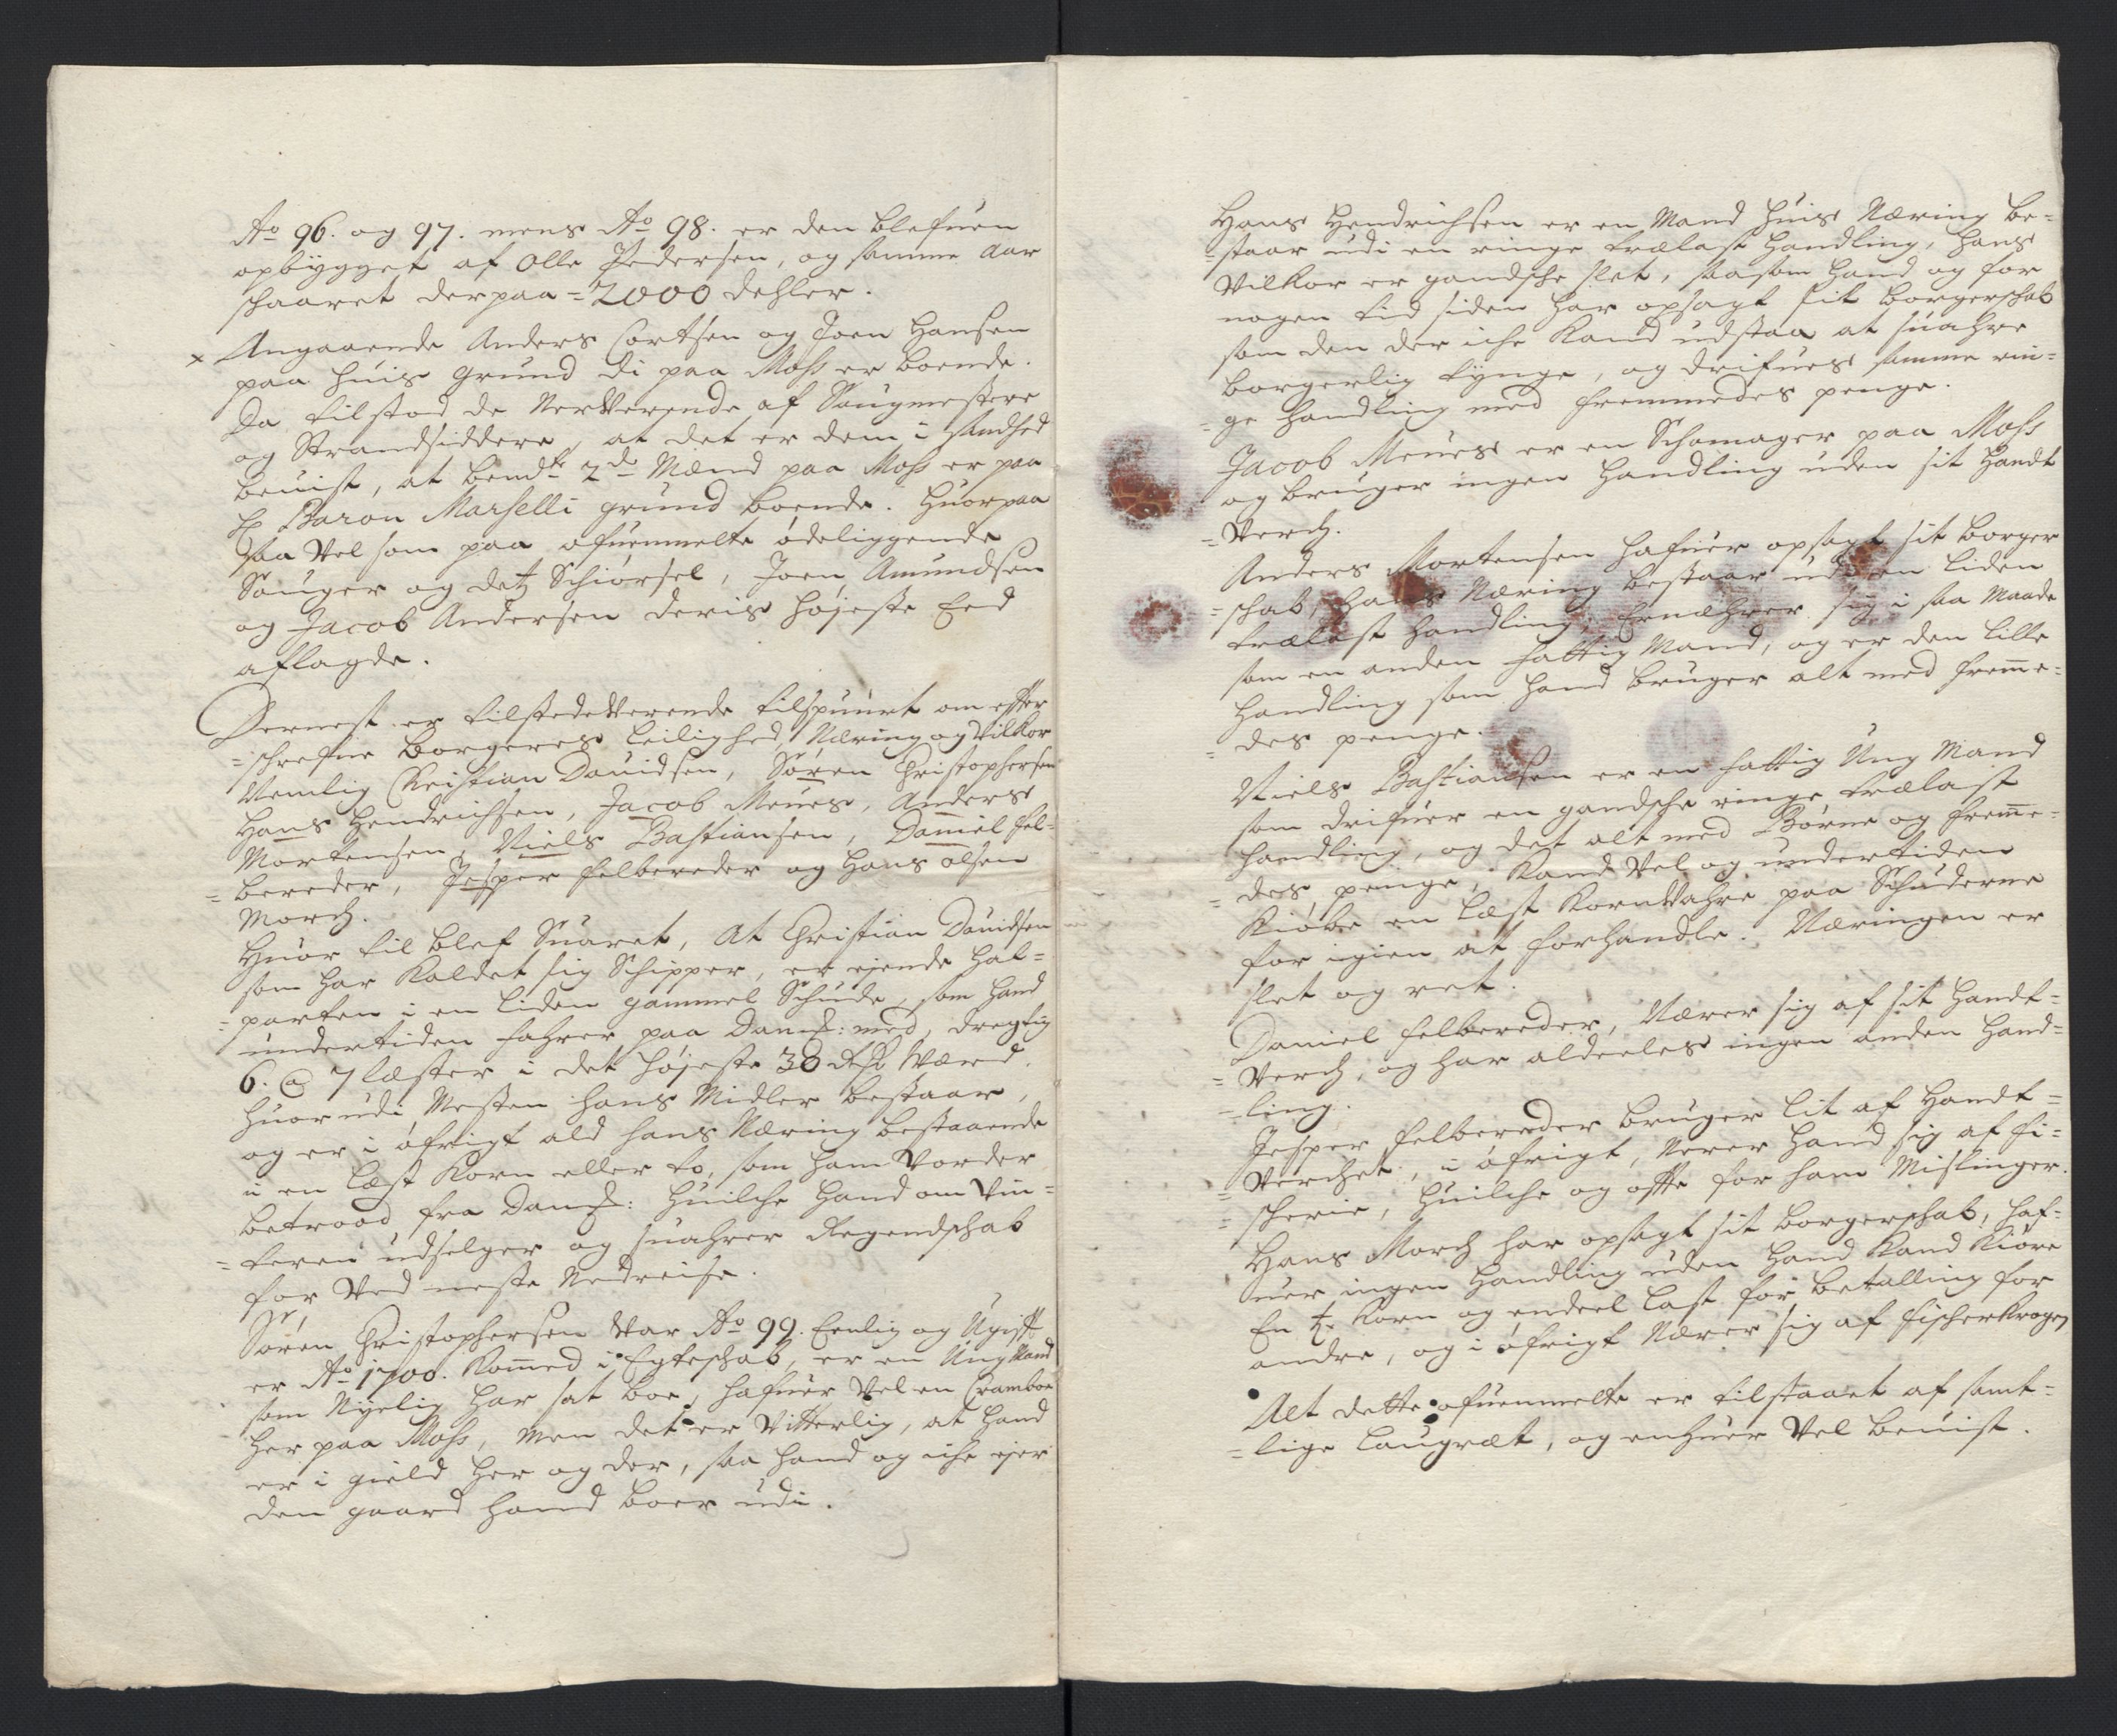 Ao 96. og 97. mens Ao 98. er den blefuen
opbygget af Olle Pedersen, og samme Aar
schaaret derpaa = 2000 dehler.
x Angaaende Anders Cortsen og Joen Hansen
paa huis grund di paa Moss er boende.
Da tilstod de Nerverende af Saugmestere
og Strandsiddere, at det er dem i sandhed
beuist, at bemdte 2de Mænd paa Moss er paa
H: Baron Marselli grund boende. Huorpaa
saa vel som paa ofuenmelte ødeliggende
Sauger og detz Schiørsel, Joen Amundsen
og Jacob Andersen deris højeste Eed
aflagde.
Dernest er tilstedeverende tilspuurt om effter
=schrefne borgeres leilighed, Næring og vilkor
Nemlig Christian Dauidsen, Søren Christophersen
Hans Hendrichsen, Jacob Meues, Anders
Mortensen, Niels Bastiansen, Daniel fel-
=bereder, Jesper felbereder og Hans olsen
Morch.
Huor til blef Suaret, At Christian Dauidsen
som har kaldet sig Schipper, er ejende hal=
=parten i en liden gammel Schude, som hand
undertiden fahrer paa Danm: med, dregtig
6. a 7 læster i det højeste 30 rdlr værd.
huorudi Mesten hans Midler bestaar,
og er i øfrigt ald hans Næring bestaaende
i en læst Korn eller to, som ham vorder
betroed fra Danm: huilche hand om vin=
=teren udselger og suahrer Regenschab
for ved neste Nedreise.
Sr, Søren Christophersen var Ao 99. Eenlig og Ugift
er Ao 1700. kommed i Egteschab, er en Ung Mand
som Nyelig har sat boe, hafuer vel en Cramboe
her paa Moss, men det er vitterlig, at hand
er i gield her og der, saa hand og iche ejer
den gaard hand boer udi.
Hans Hendrichsen er en Mand huis Næring be=
=staar udi en ringe trælast handling, hans
vilkor er gandsche slet, saasom hand og for
nogen tid siden har opsagt sit borgerschab
som den der iche kand udstaa at suahre
borgerlig tynge, og drifues samme rin=
=ge handling med fremmedes penge.
Jacob Meues er en Schomager paa Moss
og bruger ingen handling uden sit handt
=verch.
Anders Mortensen hafuer opsagt sit borger
=schab, hans Næring bestaar udi en liden
trælast handling, Ernæhrer sig i saa maade
som en anden fattig Mand, og er den lille
handling som hand bruger alt med fremme=
=des penge.
Niels Bastiansen er en fattig Ung Mand
som drifuer en gandsche ringe trælast
handling, og det alt med Børne og fremme=
=des penge, kand vel og undertiden
kiøbe en læst kornvahre paa Schuderne
for igien at forhandle. Næringen er
slet og ret.
Daniel felbereder, Nærer sig af sit handt=
=verch, og har aldeeles ingen anden hand=
=ling.
Jesper felbereder bruger lit af handt=
=verchet, i øfrigt, Nerer hand sig af fi=
=scherie, huilche og offte for ham Mislinger.
Hans Morch har opsagt sit borgerschab, haf=
uer ingen handling uden hand kand kiøre
En tr. korn og endeel last for betalling for
andre, og i øfrigt Nærer sig af fischerkrogen
Alt dette ofuenmelte er tilstaaet af samt=
=lige laugræt, og enhuer vel beuist.